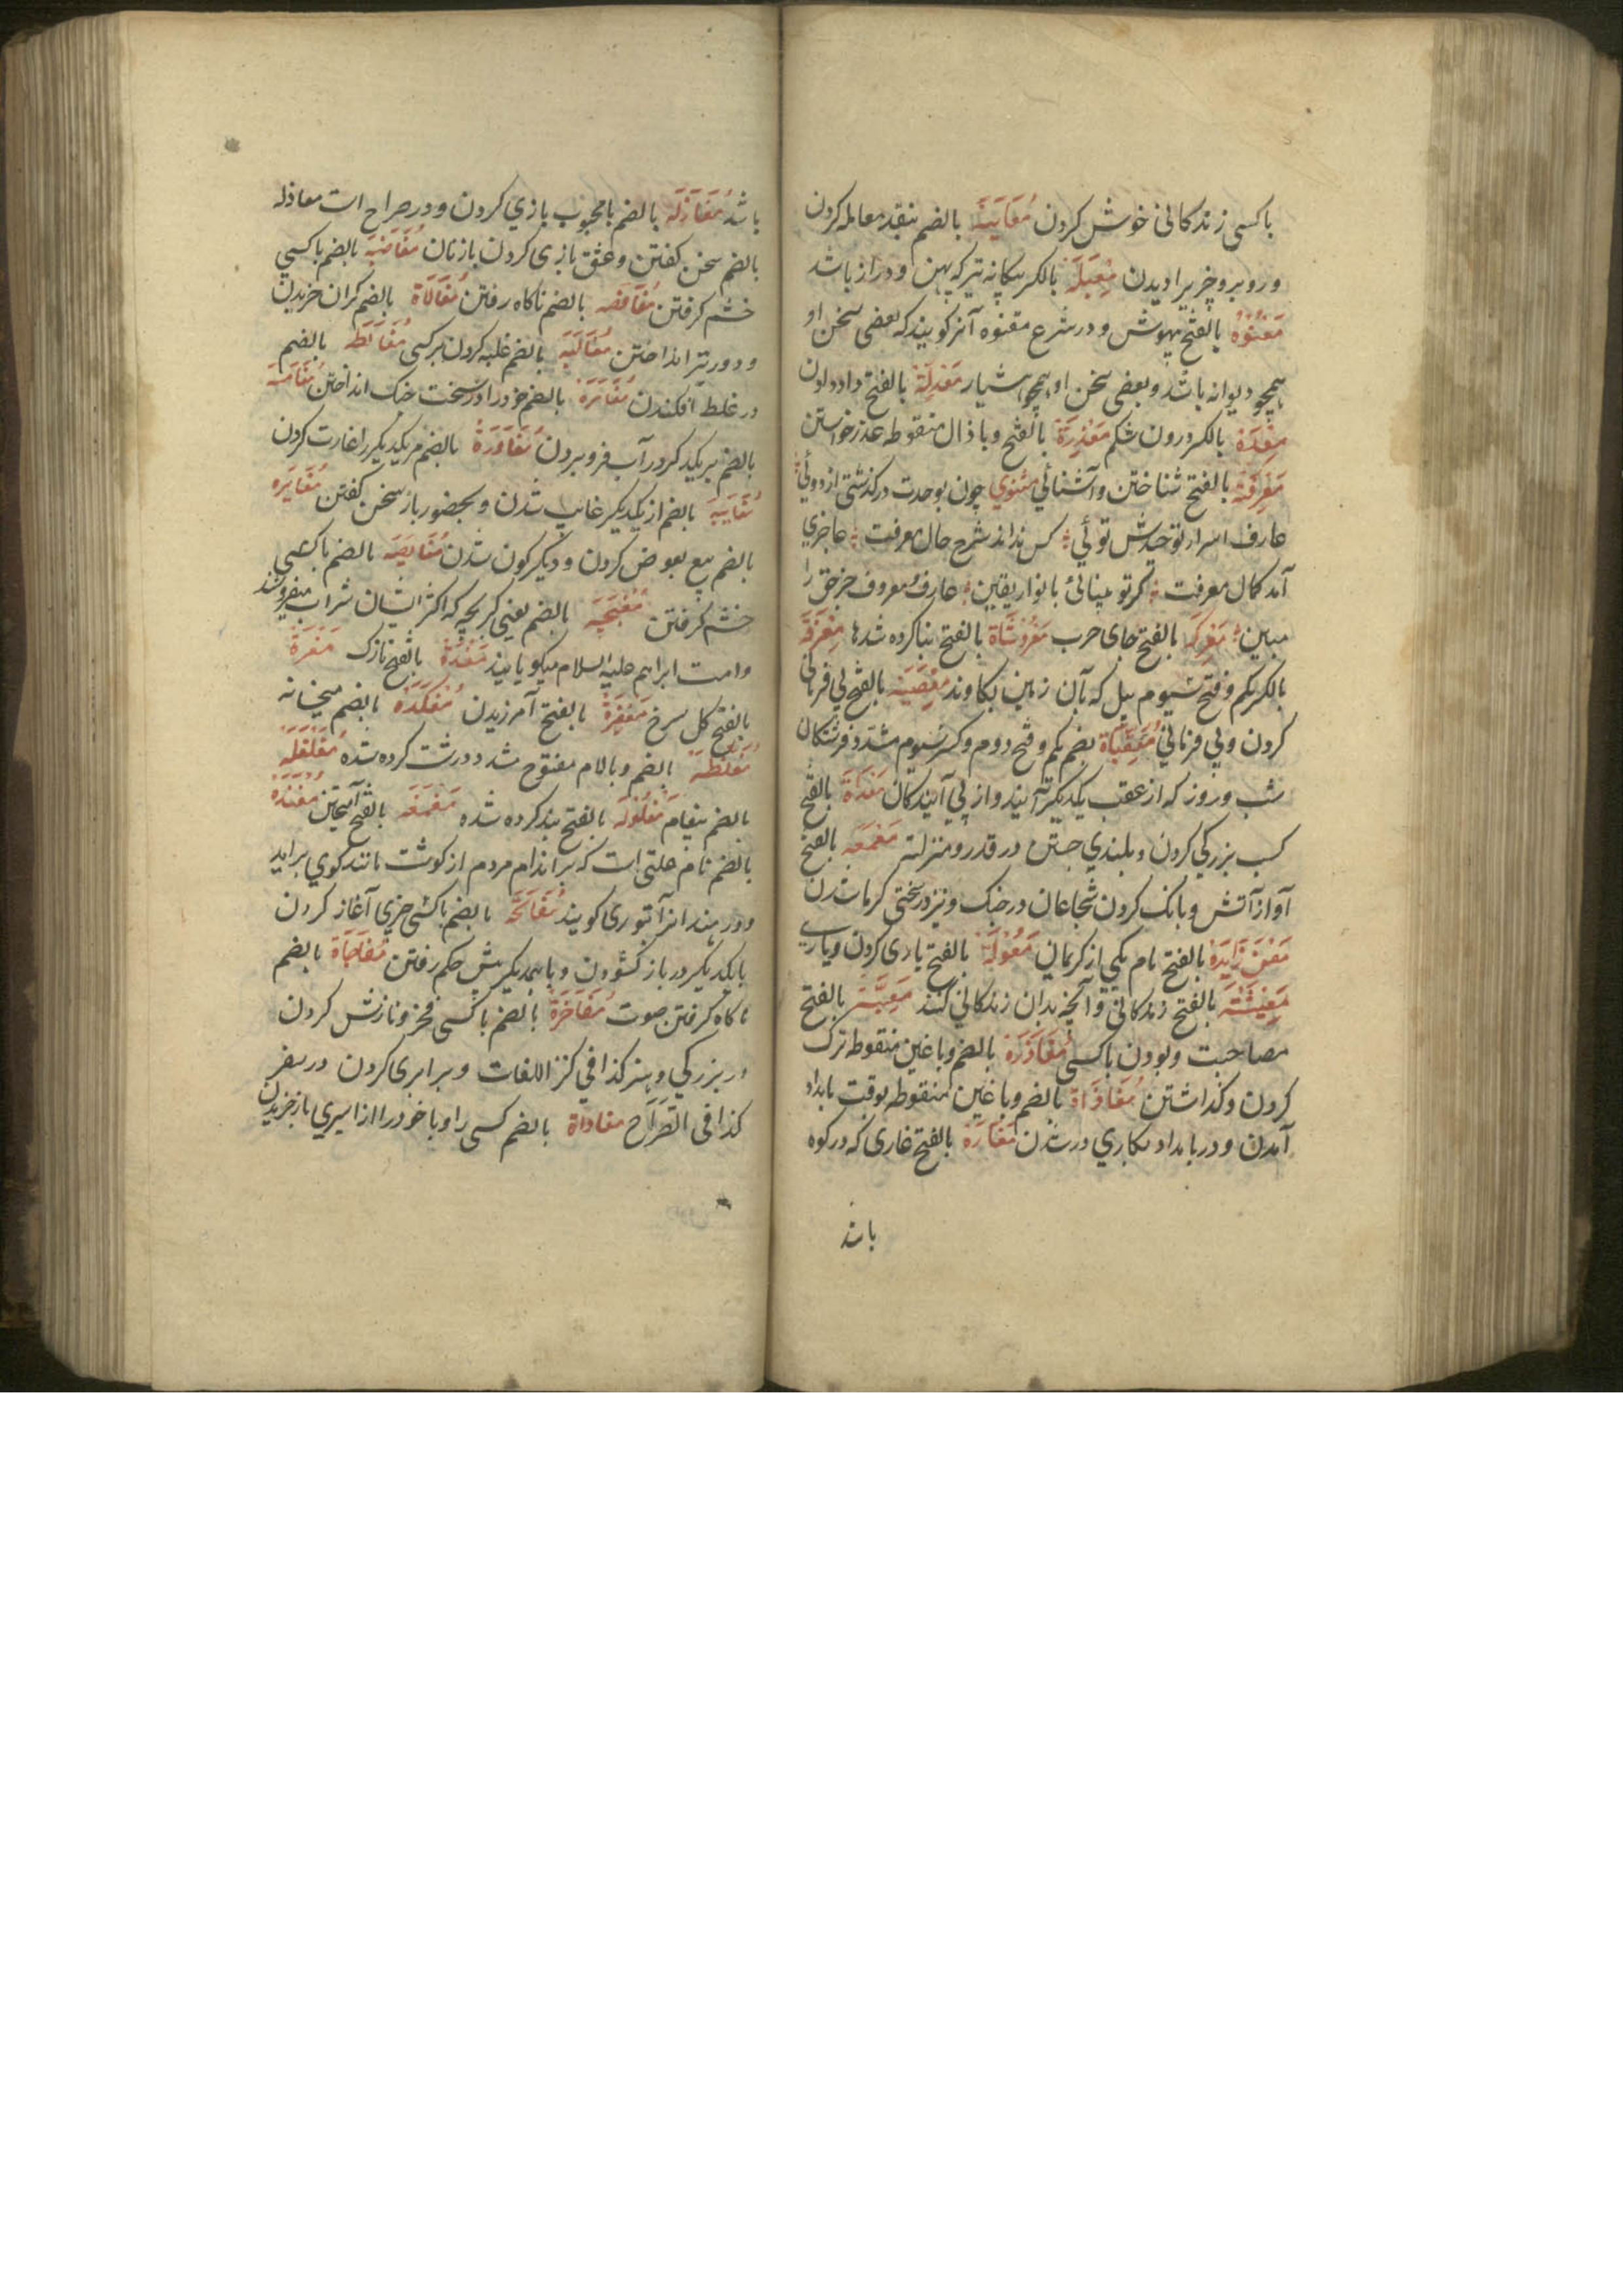 باکسی زندکانی خوش کردن مُعَایَنَة بالضم بنقد معامله کردن
و روبرو چیزیرا دیدن مِعبَلَه بالکسر پیکانه تیر که پهن و دراز باشد
مَعْتُوْه بالفتح بیهوش و در شرع معتوه آنرا کویند که بعضی سخن او
همچو دیوانه باشد و بعضی سخن او همچو هشیار مَعْدِلَة بالفتح داد دادن
مِعْدَة بالکسر درون شکم مَعْذِرَة بالفتح و با ذال منقوطه عذر خواستن
مَعْرِفَة بالفتح شناختن و آشنائی مثنوی چون بوحدت درکذشتی از دوئی
عارف اسرار توحیدش توئی کس نداند شرح حال معرفت عاجزی
آمد کمال معرفت کر تو بینائی بانوار یقین عارف و معروف جز حق را
مبین مَعْرِکَه بالفتح جای حرب مَعْرُوْشَاة بالفتح بنا کرده شدها مِعْزَقَة
بالکسر یکم و فتح سیوم بیل که بآن زمین بکاوند مَعْصِیَة بالفتح بی فرمانی
کردن و بی فرمانی مُعَقِّبَاة بضم یکم و فتح دوم و کسر سیوم مشدد فرشتکان
شب و روز که از عقب یکدیکر آیند و از پی آیندکان مَعْدَاة بالفتح
کسب بزرکی کردن و بلندی جستن در قدر و منزلت مَعْمَعَه بالفتح
آواز آتش و بانک کردن شجاعان در جنک و نیز در سختی کرما شدن
مَعْن زَایِدَه بالفتح نام یکی از کریمان مَعُوْلَة بالفتح یاری کردن و یاری
مَعِیْشَة بالفتح زندکانی و آنچه بدان زندکانی کنند مَعِیَّة بالفتح
مصاحبت و بودن باکسی مُغَادَرَة بالضم و با غین منقوطه ترک
کردن و کذاشتن مُغَادَاة بالضم و با غین منقوطه بوقت بامداد
آمدن و در بامداد بکاری در شدن مَغَارَه بالفتح غاری که در کوه
باشد
باشد مُغَازَلَه بالضم با محبوب بازی کردن و در صراح است مغازله
بالضم سخن کفتن و عشق بازی کردن با زنان مُغَاضَبَه بالضم باکسی
خشم کرفتن مُغَافَصَه بالضم ناکاه رفتن مُغَالَاة بالضم کران خریدن
و دور تیر انداختن مُغَالَبَه بالضم غلبه کردن بر کسی مُغَالَطَه بالضم
در غلط افکندن مُغَامَرَة بالضم خود را در سخت جنک انداختن مُغَامَسَه
بالضم بر یکدیکر در آب فرو بردن مُغَاوَرَة بالضم بر یکدیکر را غارت کردن
مُغَایَبَه بالضم از یکدیکر غائب شدن و بحضور باز سخن کفتن مُغَایَرَه
بالضم بیع بعوض کردن و دیکرکون شدن مُغَایَظَه بالضم باکسی
خشم کرفتن مُغْبَچَه بالضم یعنی کبر بچه که اکثر ایشان شراب میفروشند
و امت ابراهیم علیه السلام میکویانند مَغْدَة بالفتح نازک مَغْرَة
بالفتح کل سرخ مَغْفِرَة بالفتح آمرزیدن مُغْکَدَه بالضم میخانه
مُغَلَّظَه بالضم و بالام مفتوح مشدد درشت کرده شده مُغَلْغَلَه
بالضم پیغام مَغْلُوْلَه بالفتح بند کرده شده مَغْمَغَه بالفتح آمیختن مُغُنْدَه
بالضم نام علتی است که بر اندام مردم از کوشت مانند کوی براید
و در هند انرا بتوری کویند مُفَاتَحَه بالضم باکسی چیزی آغاز کردن
با یکدیکر در باز کشودن و با همدیکر پیش حکم رفتن مُفَاجَاة بالضم
ناکاه کرفتن موت مُفَاخَرَة بالضم باکسی فخر و نازش کردن
در بزرکی و هنر کذا فی کنز اللغات و برابری کردن در سفر
کذا فی الصراح مفاداة بالضم کسی را و یا خود را از اسیری باز خریدن